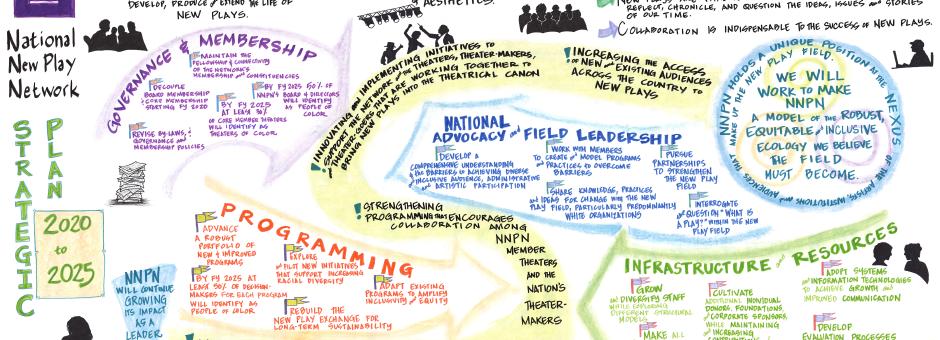 DEVELOP, PRODUCE & EXTEND THE LIFE OF
NEW PLAYS.
AESTHETICS.
REFLECT, CHRONICLE, AND QUESTION THE IDEAS, ISSUES and STORIES
OF OUR TIME.
COLLABORATION IS INDISPENSABLE to the SUCCESS of NEW PLAYS.
National
New Play
Network
STRATEGIC
PLAN
2020
to
2025
GOVERNANCE & MEMBERSHIP
MAINTAIN THE
FELLOWSHIP & CONNECTIVITY
OF THE NETWORK'S
MEMBERSHIP and CONSTITUENCIES
DECOUPLE
BOARD MEMBERSHIP
& CORE MEMBERSHIP
STARTING FY 2020
BY FY 2025
AT LEAST 30%
OF CORE MEMBER THEATERS
WILL IDENTIFY AS
THEATERS OF COLOR
BY FY 2025 50% OF
NNPN'S BOARD & DIRECTORS
WILL IDENTIFY
AS PEOPLE OF
COLOR
REVISE BY-LAWS,
GOVERNANCE and
MEMBERSHIP POLICIES
! INNOVATING and IMPLEMENTING INITIATIVES TO
NEW PLAYS INTO THE THEATRICAL CANON
! INCREASING THE ACCESS
OF NEW and EXISTING AUDIENCES
ACROSS THE COUNTRY TO
NEW PLAYS
NATIONAL
ADVOCACY and FIELD LEADERSHIP
DEVELOP A
COMPREHENSIVE UNDERSTANDING
of the BARRIERS to ACHIEVING DIVERSE
and INCLUSIVE AUDIENCE, ADMINISTRATIVE
and ARTISTIC PARTICIPATION
WORK WITH MEMBERS
TO CREATE and MODEL PROGRAMS
and PRACTICES TO OVERCOME
BARRIERS
PURSUE
PARTNERSHIPS
TO STRENGTHEN
THE NEW PLAY
FIELD
SHARE KNOWLEDGE, PRACTICES
and IDEAS FOR CHANGE WITH THE NEW
PLAY FIELD, PARTICULARLY PREDOMINANTLY
WHITE ORGANIZATIONS
INTERROGATE
the QUESTION "WHAT IS
A PLAY?" WITHIN THE NEW
PLAY FIELD
NNPN HOLDS A UNIQUE POSITION at the NEXUS OF THE ARTISTS, INSTITUTIONS, and AUDIENCES THAT MAKE UP THE NEW PLAY FIELD.
WE WILL
WORK TO MAKE
NNPN
A MODEL OF THE ROBUST,
EQUITABLE and INCLUSIVE
ECOLOGY WE BELIEVE
THE FIELD
MUST BECOME.
! STRENGTHENING
PROGRAMMING that ENCOURAGES
COLLABORATION AMONG
NNPN
MEMBER
THEATERS
AND THE
NATION'S
THEATER-
MAKERS
PROGRAMMING
ADVANCE
A ROBUST
PORTFOLIO OF
NEW & IMPROVED
PROGRAMS
EXPLORE
and PILOT NEW INITIATIVES
THAT SUPPORT INCREASING
RACIAL DIVERSITY
ADAPT EXISTING
PROGRAMS TO AMPLIFY
INCLUSIVITY and EQUITY
BY FY 2025 AT
LEAST 50% OF DECISION-
MAKERS FOR EACH PROGRAM
WILL IDENTIFY AS
PEOPLE OF COLOR
REBUILD THE
NEW PLAY EXCHANGE FOR
LONG-TERM SUSTAINABILITY
NNPN
WILL CONTINUE
GROWING
ITS IMPACT
AS A
LEADER
INFRASTRUCTURE and RESOURCES
GROW
and DIVERSIFY STAFF
WHILE EXPLORING
DIFFERENT STRUCTURAL
MODELS
MAKE ALL
CULTIVATE
ADDITIONAL INDIVIDUAL
DONORS, FOUNDATIONS,
and CORPORATE SPONSORS,
WHILE MAINTAINING
and INCREASING
ADOPT SYSTEMS
and INFORMATION TECHNOLOGIES
TO ACHIEVE GROWTH and
IMPROVED COMMUNICATION
DEVELOP
EVALUATION PROCESSES